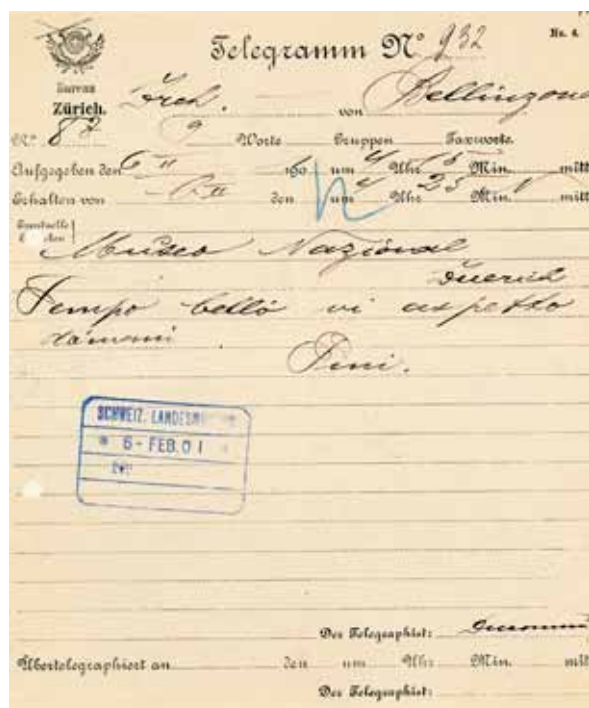 Telegramm Nº 932
No. 4.
Bureau
Zürich.
von Bellinzona
Nº 87 9 Worte Gruppen Taxworte.
Aufgegeben den 6 II um 4 Uhr 15 Min. mitt
Erhalten von den um 4 Uhr 25 Min. mitt
Eventuelle
Museo Nazional
Zuerich
Tempo bello vi aspetto
damani
Peni.
SCHWEIZ. LANDESM
* 6 - FEB. 01 *
Der Telegraphist:
Übertelegraphiert an den um Uhr Min. mitt
Der Telegraphist: